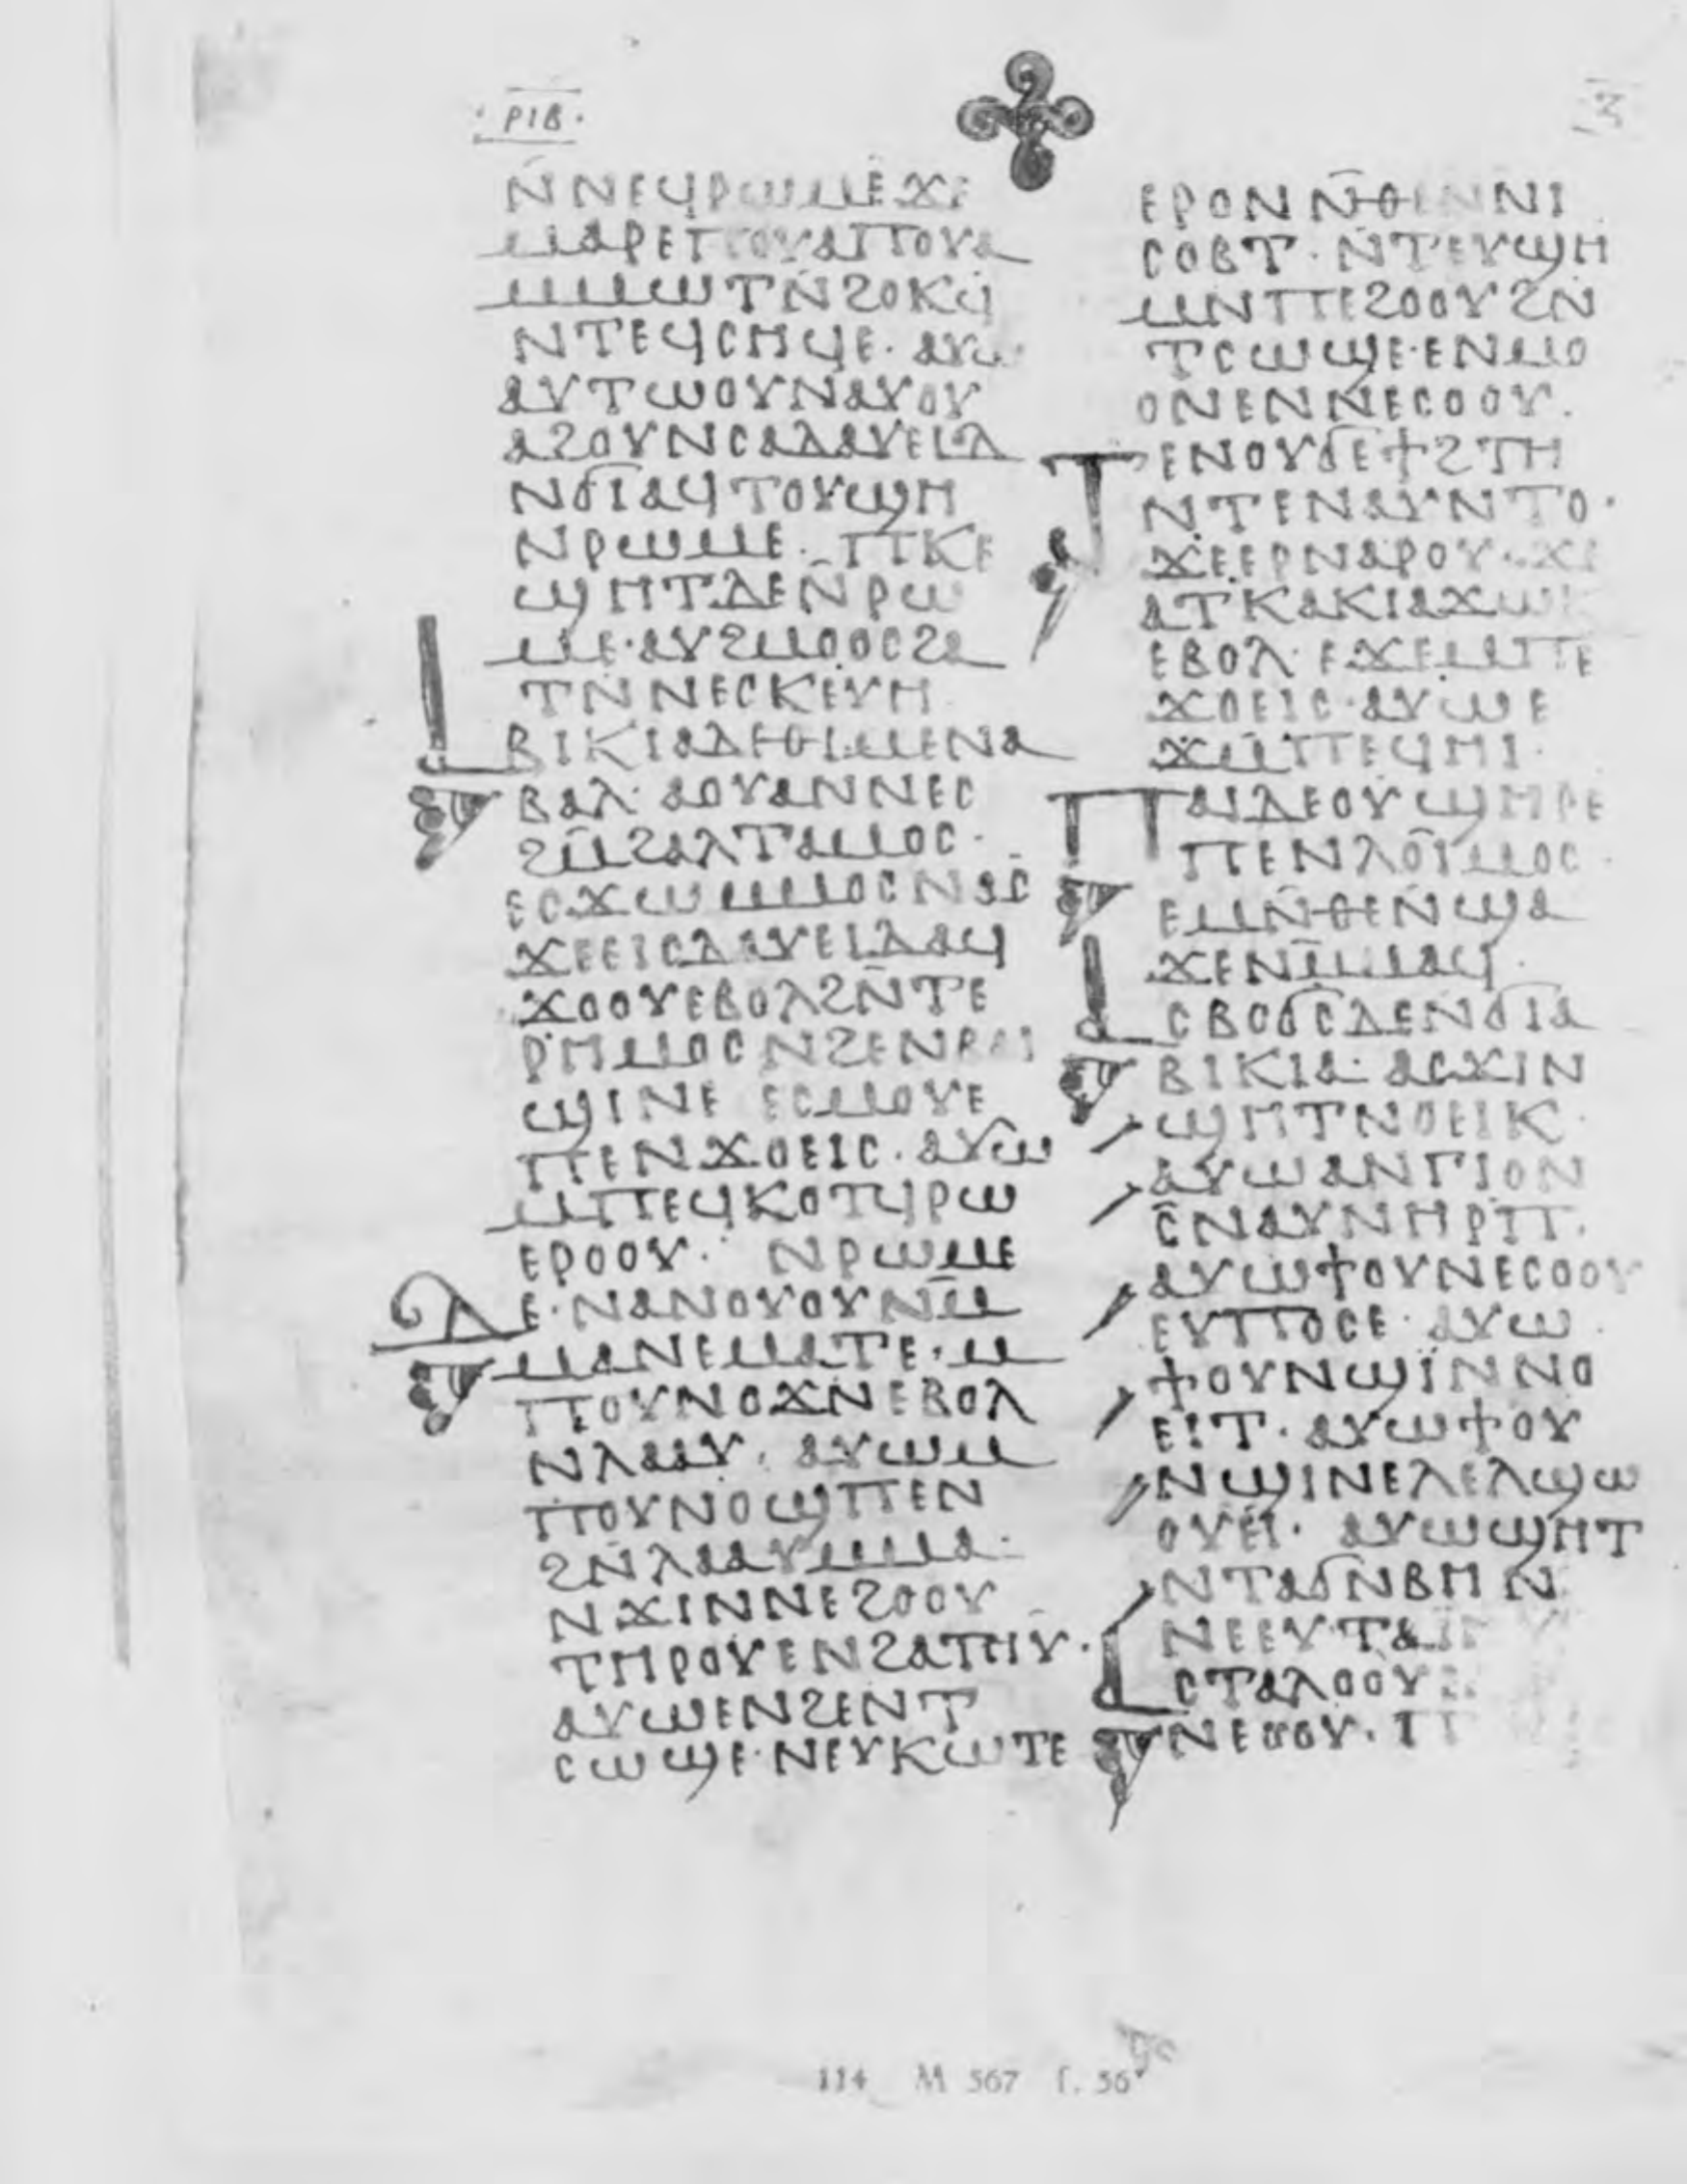 ⲣⲓⲃ
ⲛ̄ⲛⲉϥⲣⲱⲙⲉ ϫⲉ
ⲙⲁⲣⲉⲡⲟⲩⲁⲡⲟⲩⲁ
ⲙⲙⲱⲧⲛ̄ϩⲟⲕϥ
ⲛⲧⲉϥⲥⲏϥⲉ· ⲁⲩⲱ
ⲁⲩⲧⲱⲟⲩⲛⲁⲩⲟⲩ
ⲁϩⲟⲩⲛⲥⲁⲇⲁⲩⲉⲓⲇ
ⲛϭⲓⲁϥⲧⲟⲩϣⲏ
ⲛⲣⲱⲙⲉ· ⲡⲕⲉ
ϣⲏⲧ ⲇⲉⲛ̄ⲣⲱ
ⲙⲉ· ⲁⲩϩⲙⲟⲟⲥϩⲁ
ⲧⲛ̄ⲛⲉⲥⲕⲉⲩⲏ
ⲁⲃⲓⲕⲓⲁⲇⲉⲑⲓⲙⲉⲛⲁ
ⲃⲁⲗ· ⲁⲟⲩⲁⲛⲛⲉⲥ
ϩⲙ̄ϩⲁⲗⲧⲁⲙⲟⲥ·
ⲉⲥϫⲱⲙⲙⲟⲥⲛⲁⲥ
ϫⲉⲉⲓⲥⲇⲁⲩⲉⲓⲇⲁϥ
ϫⲟⲟⲩⲉⲃⲟⲗϩⲛ̄ⲧⲉ
ⲣⲏⲙⲟⲥⲛϩⲉⲛϥⲁⲓ
ϣⲓⲛⲉ ⲉⲥⲙⲟⲩⲉ
ⲡⲉⲛϫⲟⲉⲓⲥ· ⲁⲩⲱ
ⲙⲡⲉϥⲕⲟⲧϥⲣⲱ
ⲉⲣⲟⲟⲩ· ⲛⲣⲱⲙⲉ
ⲇⲉ· ⲛⲁⲛⲟⲩⲟⲩⲛⲙ̄
ⲙⲁⲛⲉⲙⲁⲧⲉ· ⲙ
ⲡⲟⲩⲛⲟϫⲛⲉⲃⲟⲗ
ⲛⲗⲁⲁⲩ· ⲁⲩⲱⲙ
ⲡⲟⲩⲛⲟϣⲡⲉⲛ
ϩⲛ̄ⲗⲁⲁⲩⲙⲙⲁ·
ⲛϫⲓⲛⲛⲉϩⲟⲟⲩ
ⲧⲏⲣⲟⲩⲉⲛϩⲁⲧⲏⲩ·
ⲁⲩⲱⲉⲛϩⲉⲛⲧ
ⲥⲱϣⲉ· ⲛⲉⲩⲕⲱⲧⲉ
ⲉⲣⲟⲛⲛ̄ⲑⲉⲛⲛⲓ
ⲥⲟⲃⲧ· ⲛ̄ⲧⲉⲩϣⲏ
ⲙⲛⲡⲉϩⲟⲟⲩϩⲛ
ⲧⲥⲱϣⲉ· ⲉⲛⲙⲟ
ⲟⲛⲉⲛⲛⲉⲥⲟⲟⲩ·
ⲧⲉⲛⲟⲩϭⲉϯϩⲧⲏ
ⲛⲧⲉⲛⲁⲩⲛⲧⲟ·
ϫⲉⲉⲣⲛⲁⲣⲟⲩ· ϫⲉ
ⲁⲧⲕⲁⲕⲓⲁϫⲱⲕ
ⲉⲃⲟⲗ· ⲉϫⲉⲙⲡⲉ
ϫⲟⲉⲓⲥ· ⲁⲩⲱⲉ
ϫⲙ̄ⲡⲉϥⲏⲓ·
ⲡⲁⲓⲇⲉⲟⲩϣⲏⲣⲉ
ⲡⲉⲛⲗⲟⲓⲙⲟⲥ·
ⲉⲙⲛ̄ⲑⲉⲛ̄ϣⲁ
ϫⲉⲛⲙ̄ⲙⲁϥ·
ⲁⲥϭⲟϭⲥⲇⲉⲛϭⲓⲁ
ⲃⲓⲕⲓⲁ· ⲁⲥϫⲓⲛ
ϣⲏⲧⲛⲟⲉⲓⲕ·
ⲁⲩⲱⲁⲛⲅⲓⲟⲛ
ⲥ̄ⲛⲁⲩⲛⲏⲣⲡ·
ⲁⲩⲱϯⲟⲩⲛⲉⲥⲟⲟⲩ
ⲉⲩⲡⲟⲥⲉ· ⲁⲩⲱ
ϯⲟⲩⲛϣⲓⲛⲛⲟ
ⲉⲓⲧ· ⲁⲩⲱϯⲟⲩ
ⲛϣⲓⲛⲉⲗⲉⲗϣⲱ
ⲟⲩⲉⲓ· ⲁⲩⲱϣⲏⲧ
ⲛⲧⲁϭⲛⲃⲏⲛ
ⲛⲉⲉⲩⲧⲁ
ⲁⲥⲧⲁⲗⲟⲟⲩ
ⲛⲉⲟⲟⲩ· ⲡ
114 M 567 f. 56v